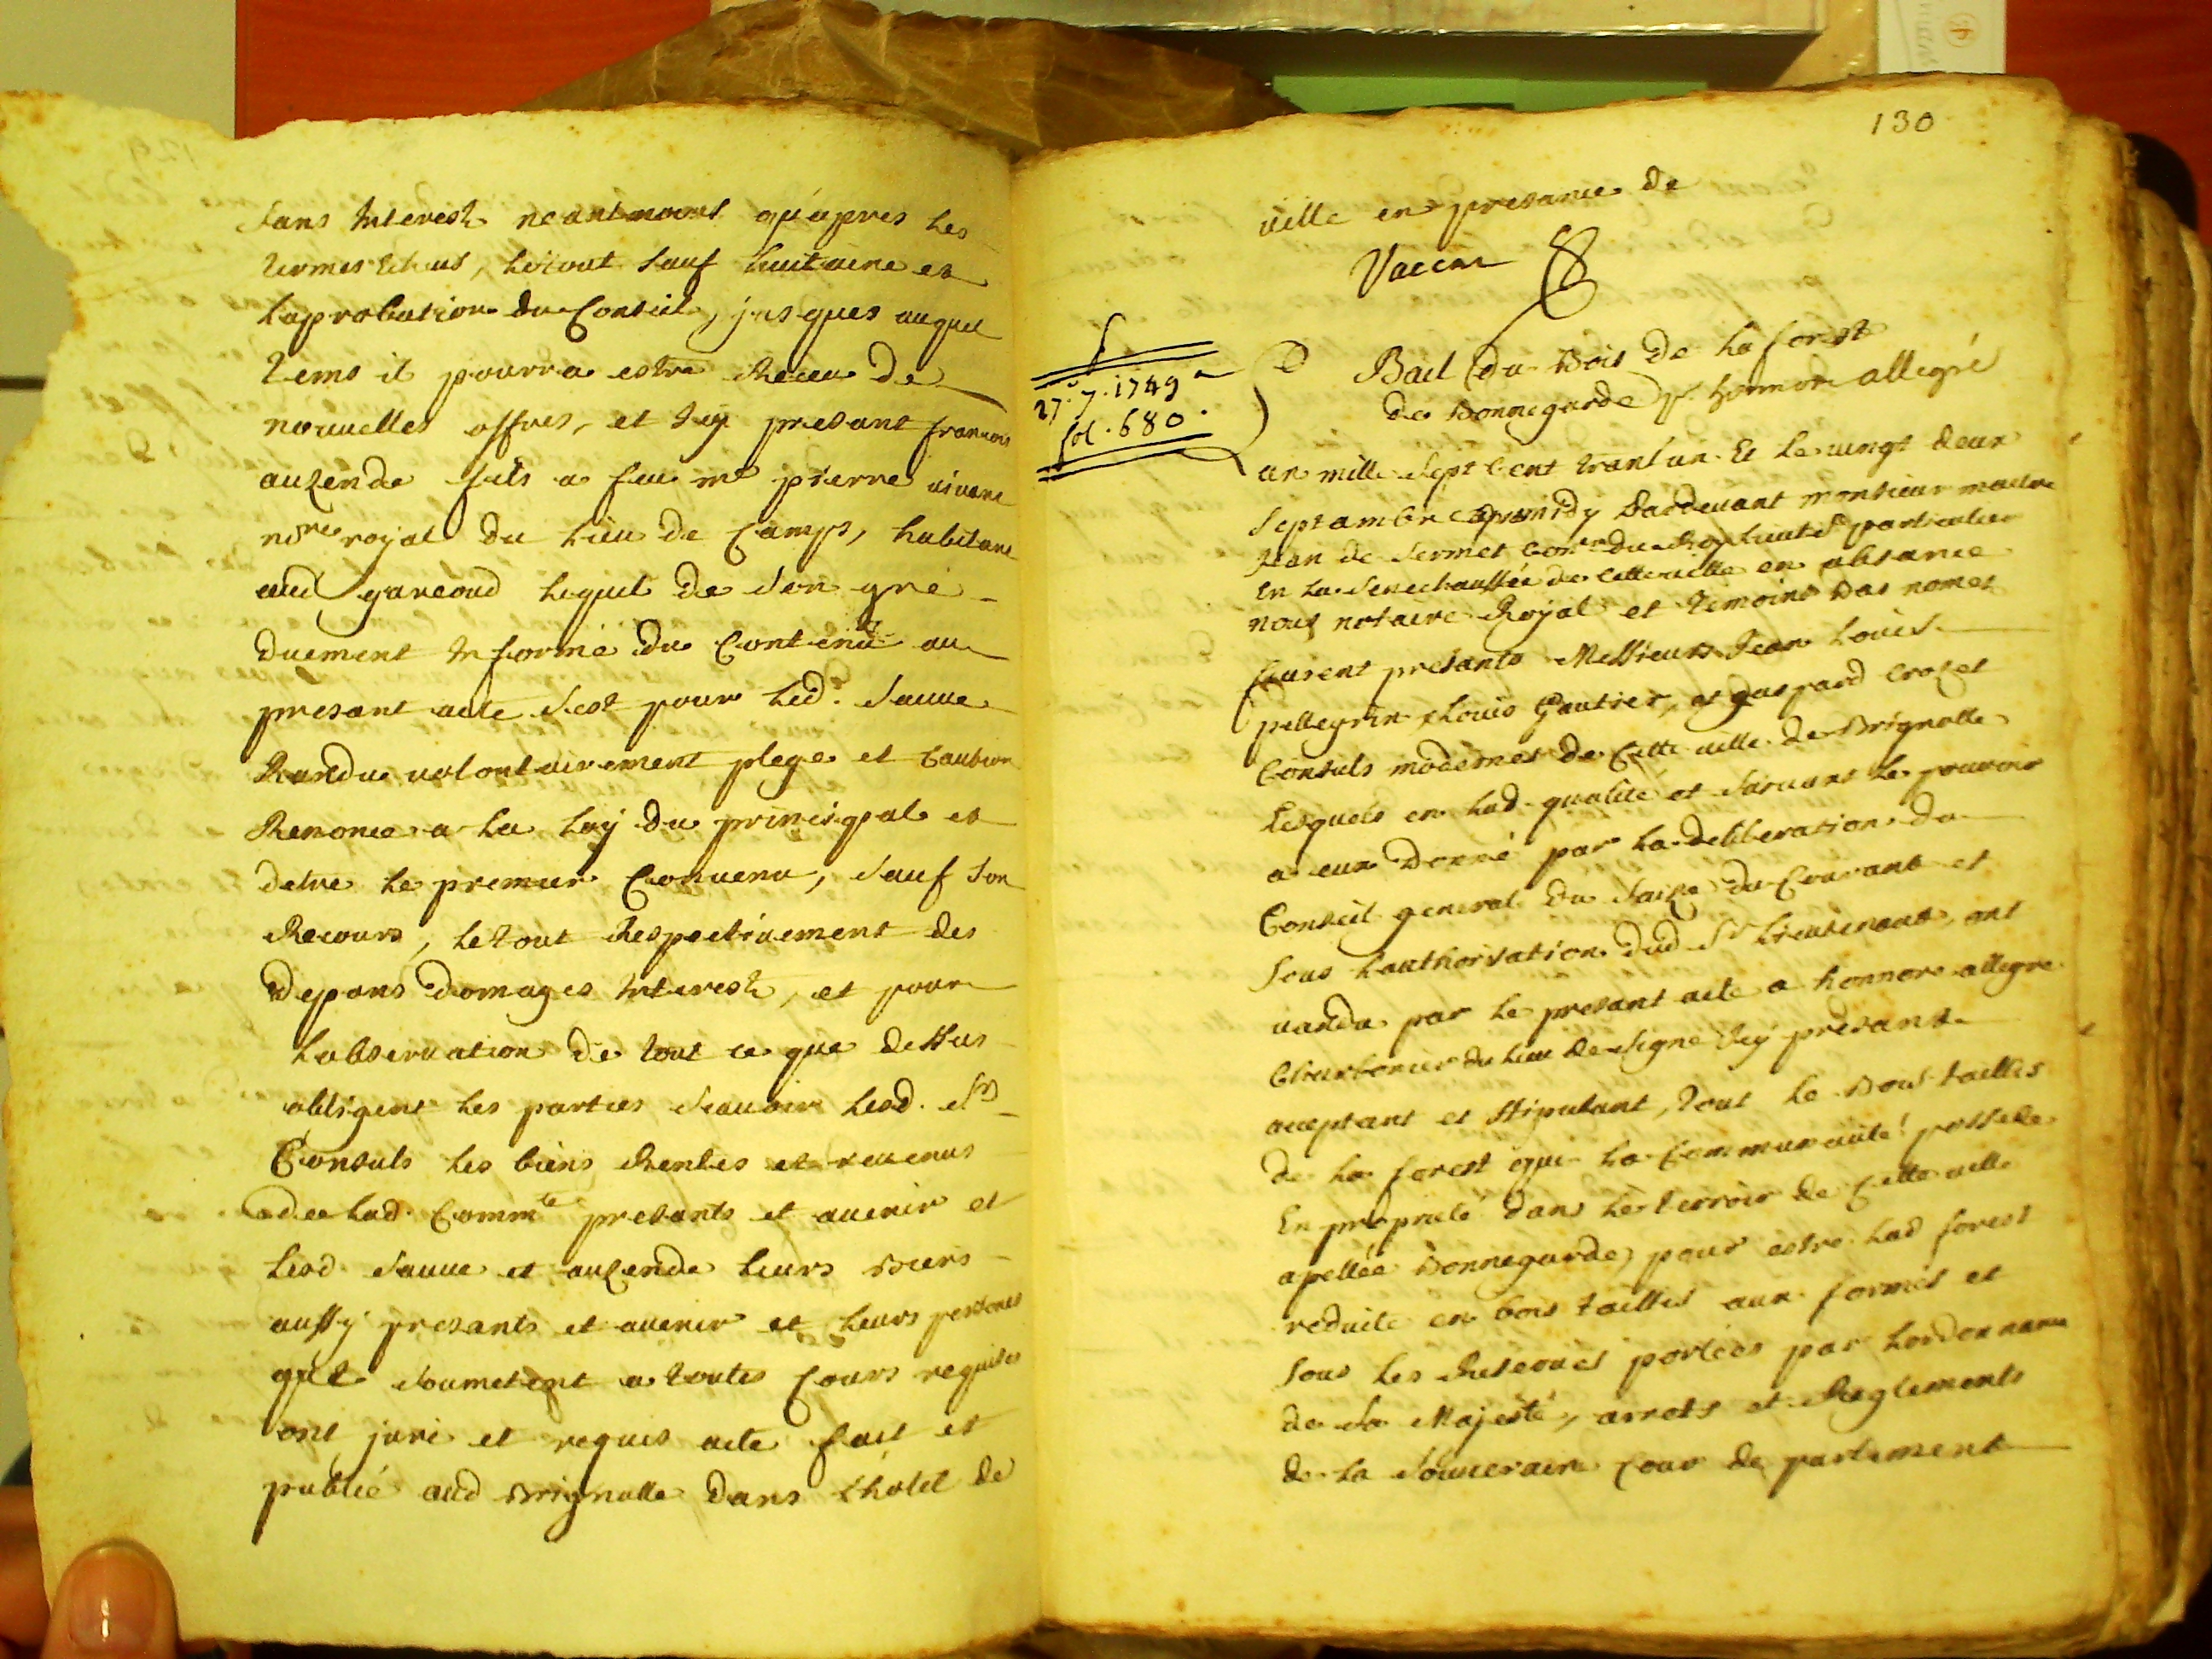 sans Interest neantmoins qu'apres les
termes Echus, letout sauf huitaine et
laprobation du Conseil, jusques auquel
tems il pourra estre Receu de
nouvelles offres, et Icy presant francois
auzende fils a feu me pierre vivant
nore royal du lieu de Camps, habitant
aud gareoud lequel de son gré
duement Informé du Contenu au
presant acte sest pour led. sauue
Randu volontairement plege et Caution
Renonce a la loy du principal et
detre le premier Convenu, sauf son
Recours, letout Respectivement des
depans domages Interest, et pour
lobservation de tout ce que dessus
obligent les parties scavoir lesd. Srs
Consuls les biens Rentes et revenus
de lad. Commte presants et avenir et
lesd sauue et auzende leurs biens
aussy presants et avenir et leurs persones
quil soumetent a toutes Cours requises
ont juré et requis acte fait et
publié aud Brignolle dans lhotel de
130
ville en presance de
Bail du Bois de la forest
de Bonnegarde pr honnoré allegre
27. 7. 1749
fol. 680.
an mille sept Cent trantun Et le vingt deux
Septambre apresmidy pardevant monsieur maitre
Jean de sermet Conr du Roy lieutt particulier
En la Senechaussée de cette ville en absance
nous notaire Royal et temoins bas nomes
furent presants Messieurs Jean louis
pellegrin louis Gautier, et gaspard Crozet
Consuls modernes de Cette ville de Brignolle
Lesquels en lad. qualité et suivant le pouvoir
a eux donné par la deliberation du
Conseil general du saize du Courant et
sous lauthorisation dud Sr lieutenant, ont
vandu par le presant acte a honnore allegre
Charbonier du lieu de signe Icy presant
aceptant et stipulant, tout le bois taillis
de la forest que la Communauté possede
En proprieté dans le terroir de Cette ville
apellée Bonnegarde, pour estre lad forest
reduite en bois taillis aux formes et
sous les Reserves portées par lordonnance
de sa Majesté, arrets et Reglements
de la souveraine Cour de parlement